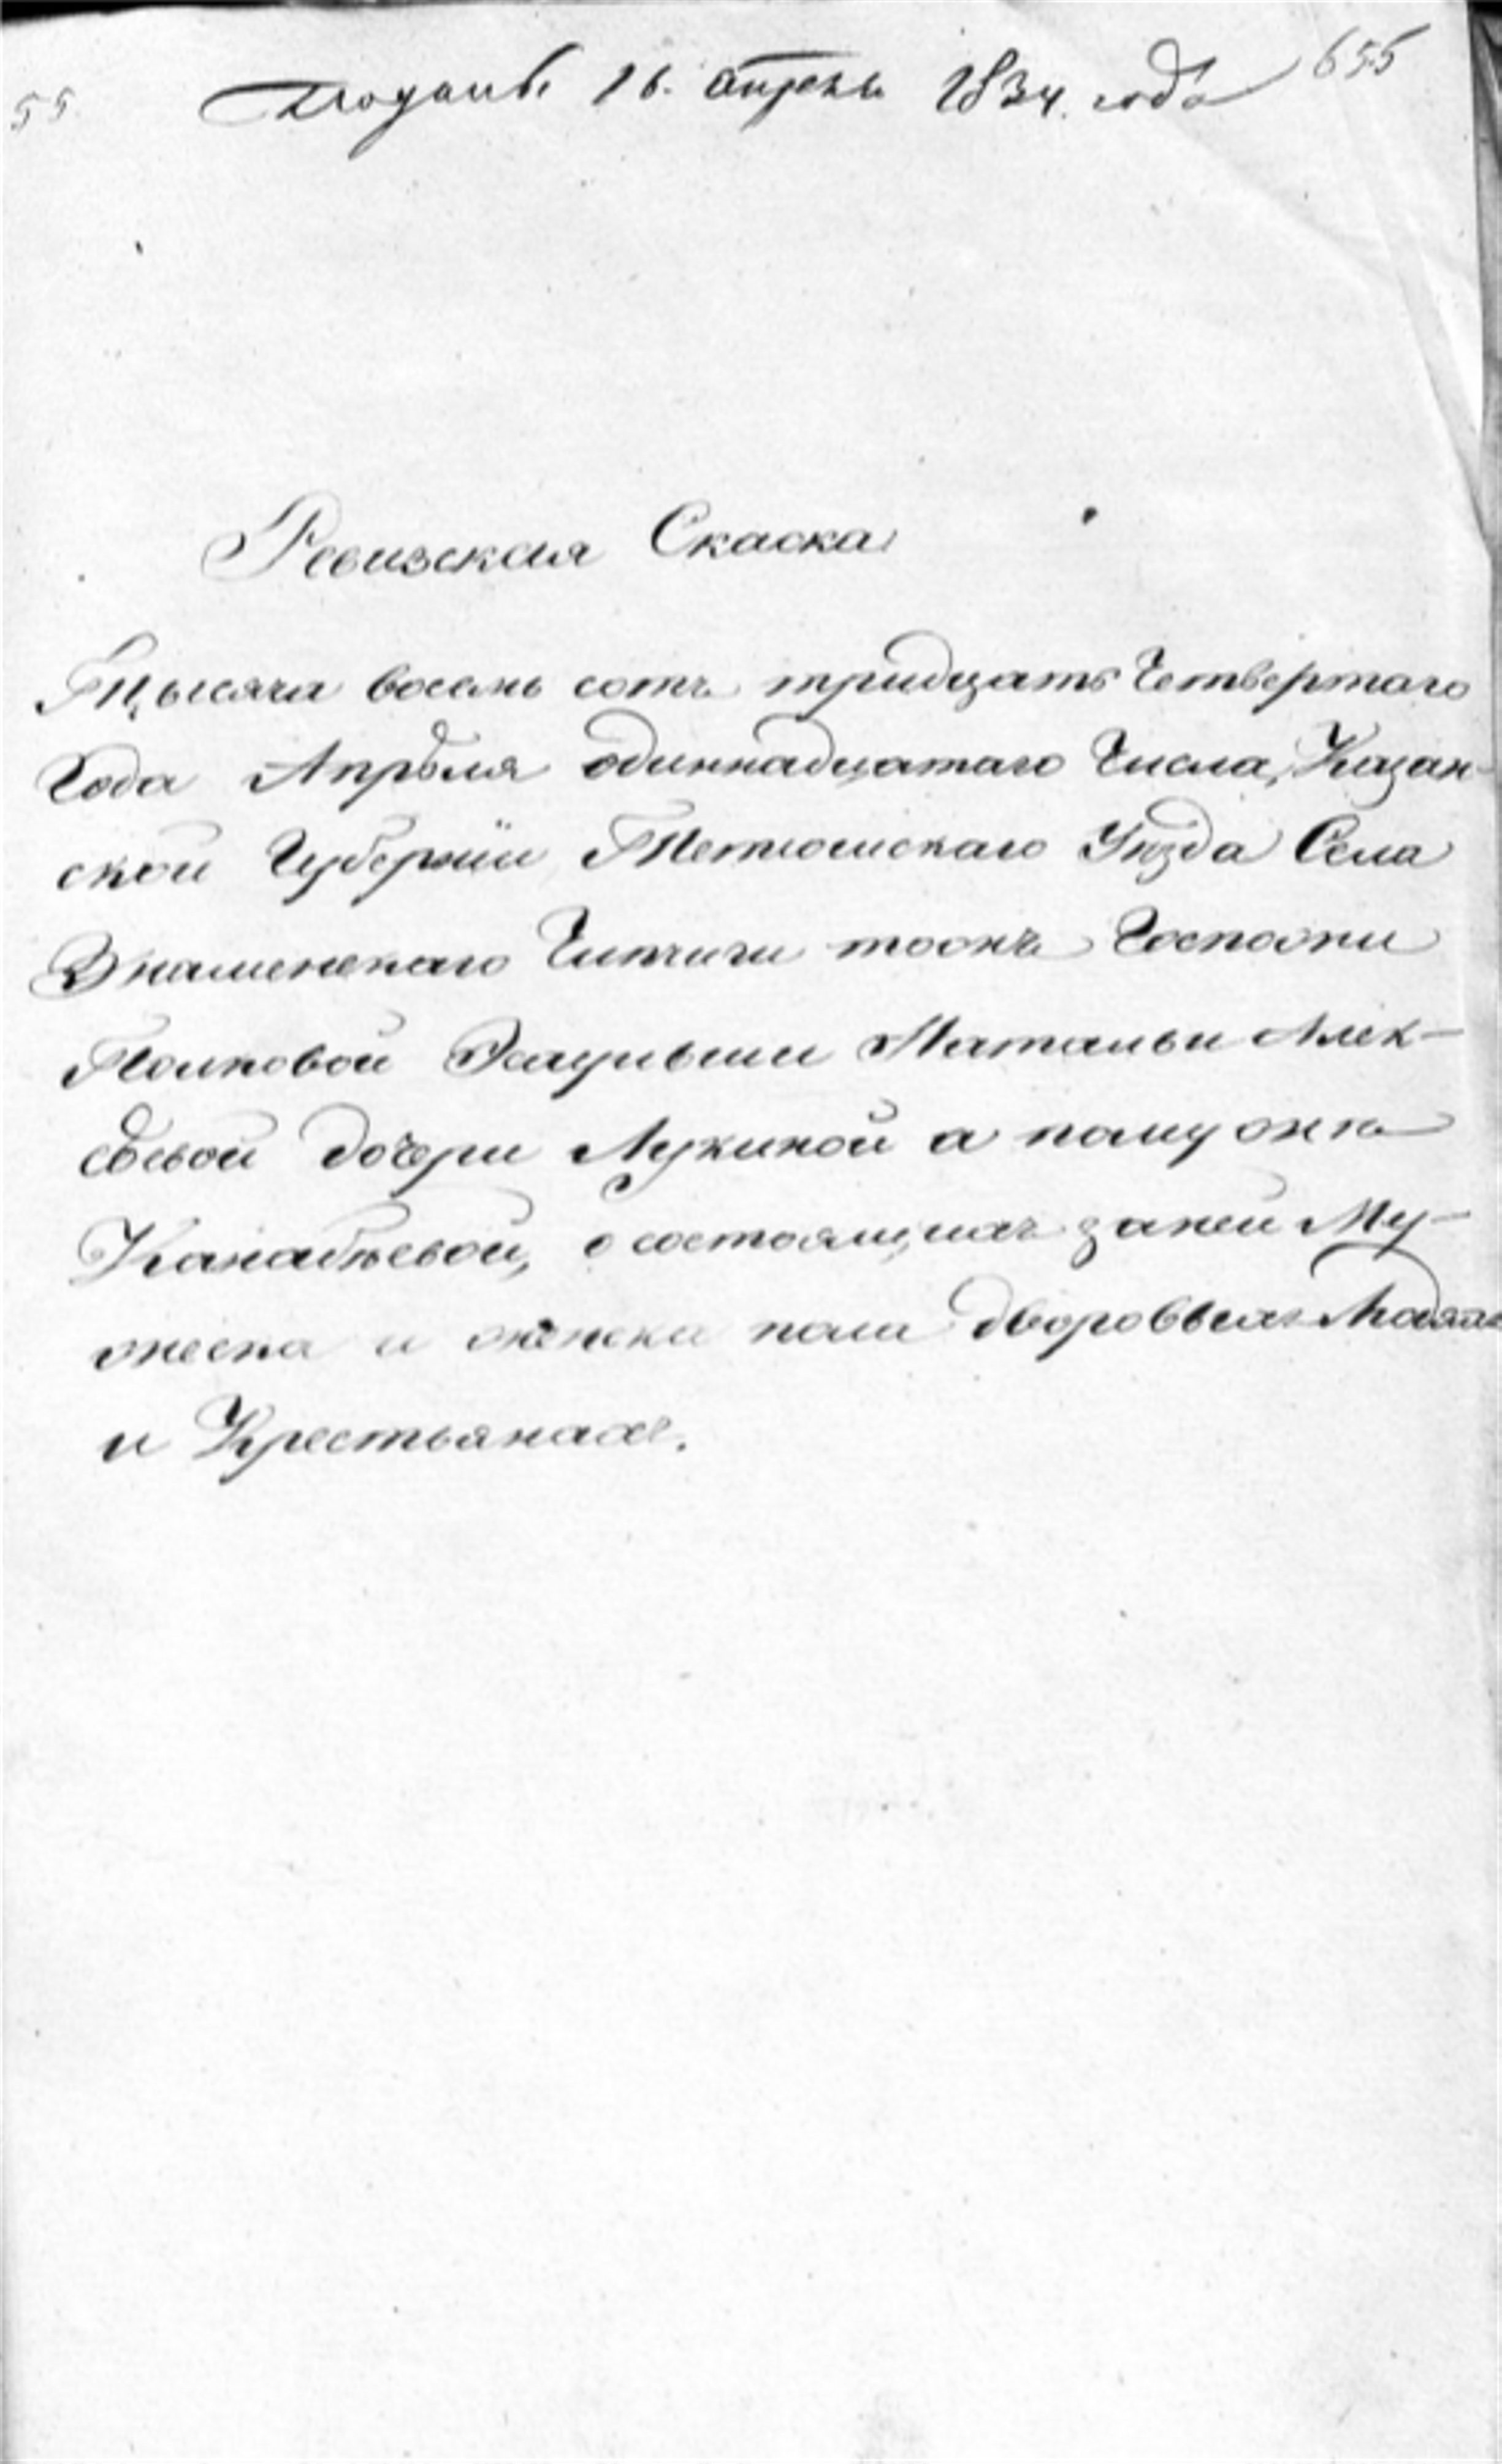 55
655
Подана 16. апреля 1834. года
Ревизская Скаска
Тысяча восемь сотъ тридцать Четвертаго
Года Апрѣля одиннадцатаго Числа, Казан-
ской Губернiи Тетюшскаго Уѣзда Села
Знаменскаго тожъ Госпожи
Полковой Натальи Алек-
сѣевой дочери Лукиной а помужѣ
о состоящихъ заней Му-
жеска и женска пола дворовыхъ Людяхъ
и Крестьянахъ.